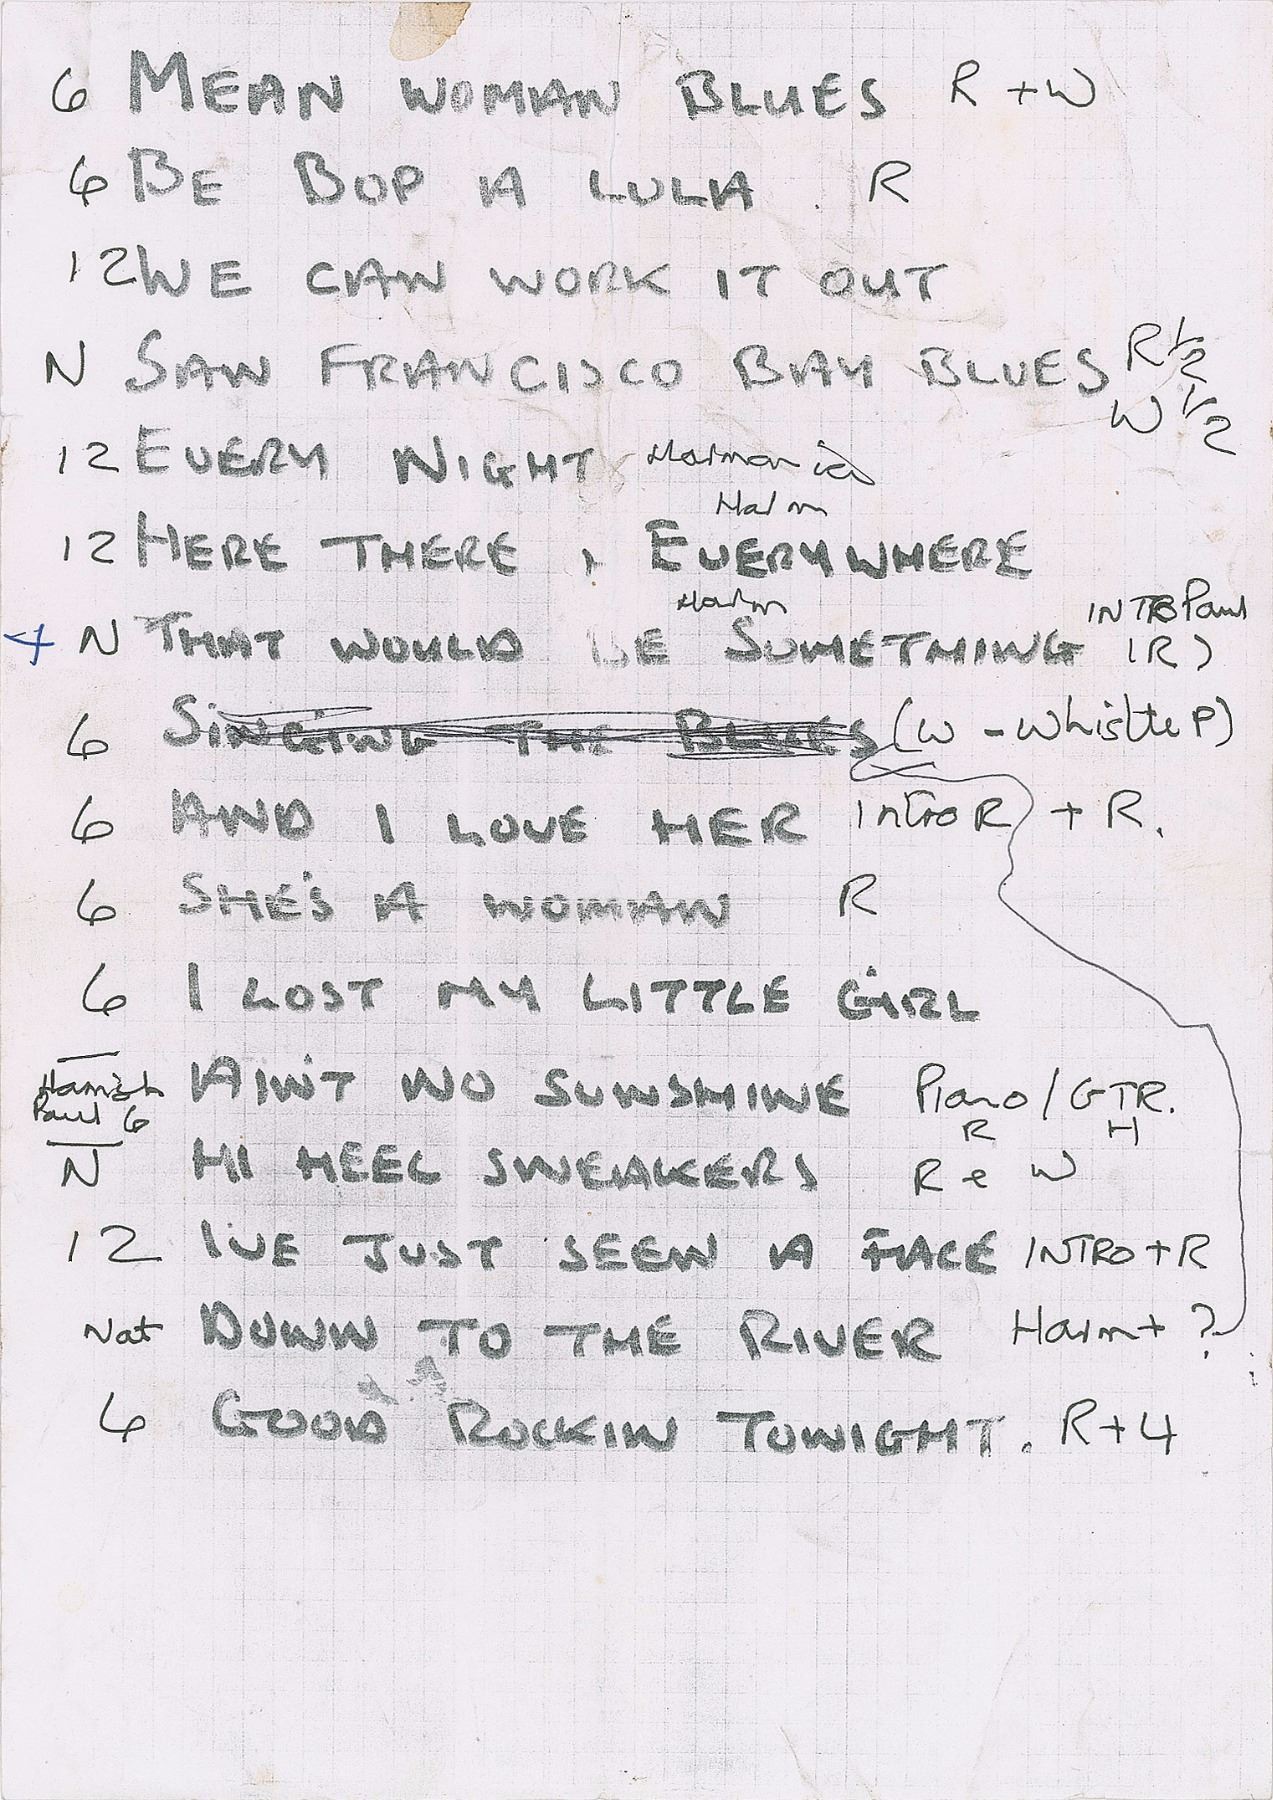 6 MEAN WOMAN BLUES R + W
6 BE BOP A LULA . R
12 WE CAN WORK IT OUT
N SAN FRANCISCO BAY BLUES R 1/2
W 1/2
12 EVERY NIGHT Harmonica
Harm
12 HERE THERE , EVERYWHERE
Harm INTRO Paul
+ N THAT WOULD BE SOMETHING (R)
6 SINGING THE BLUES (W - Whistle P)
6 AND I LOVE HER Intro R + R.
6 SHE'S A WOMAN R
6 I LOST MY LITTLE GIRL
Hamish AIN'T NO SUNSHINE Piano / GTR.
Paul 6 R H
N HI HEEL SNEAKERS R e W
12 I'VE JUST SEEN A FACE INTRO + R
Nat DOWN TO THE RIVER Harm + ?
6 GOOD ROCKIN TONIGHT. R + 4